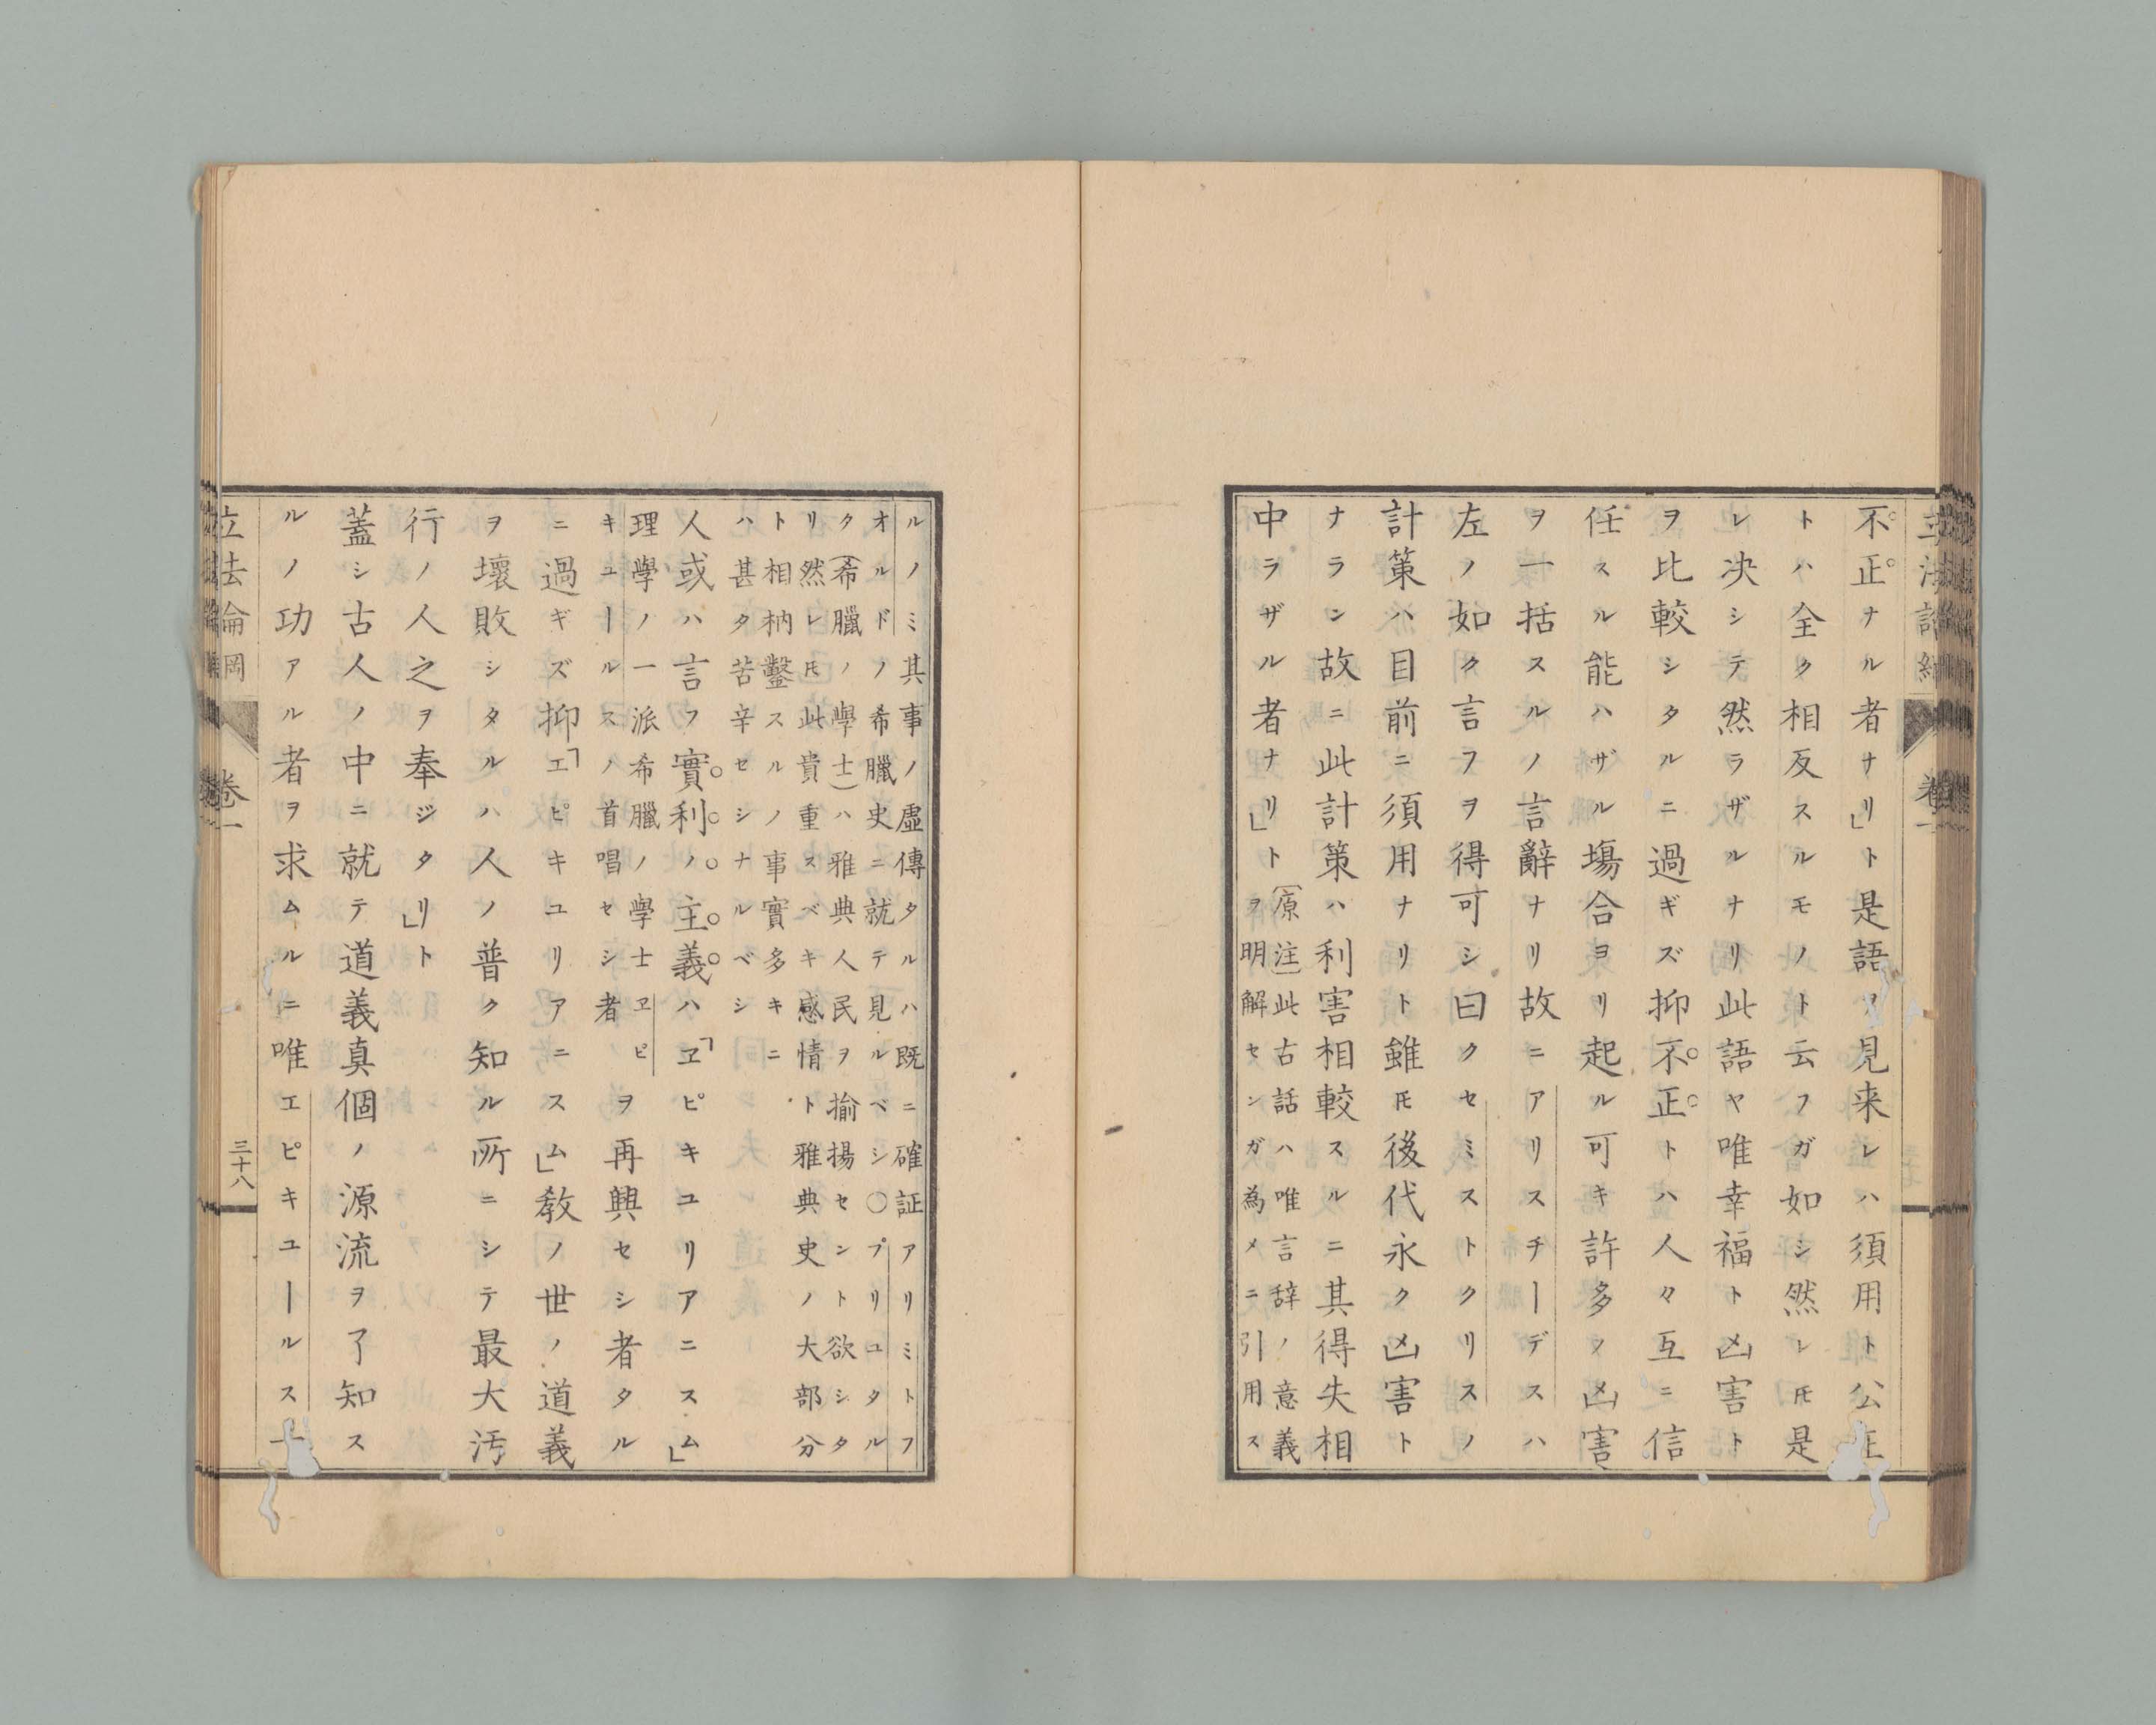 不正ナル者ナリ」ト是語ヲ見来レハ須用ト公正
トハ全ク相反スルモノト云フガ如シ然レ𪜈是
レ决シテ然ラザルナリ此語ヤ唯幸福ト凶害ト
ヲ比較シタルニ過ギズ抑不正トハ人々互ニ信
任スル能ハザル塲合ヨリ起ル可キ許多ノ凶害
ヲ一括スルノ言辭ナリ故ニアリスチーデスハ
左ノ如ク言フヲ得可シ曰クセミストクリスノ
計策ハ目前ニ須用ナリト雖𪜈後代永ク凶害ト
ナラン故ニ此計策ハ利害相較スルニ其得失相
中ラザル者ナリ」ト
(原注)此古話ハ唯言辞ノ意義
ヲ明解センガ為メニ引用ス
立法論綱 卷一
ルノミ其事ノ虚傳タルハ既ニ確証アリミトフ
オルドノ希臘史ニ就テ見ルベシ〇プリユタル
ク(希臘ノ學士)ハ雅典人民ヲ揄揚セント欲シタ
リ然レ𪜈此貴重スベキ感情ト雅典史ノ大部分
ト相枘鑿スルノ事實多キニ
ハ甚タ苦辛セシナルベシ
人或ハ言フ實利ノ主義ハ「ヱピキユリアニスム」
理學ノ一派希臘ノ學士ヱピ
キユールスノ首唱セシ者
ヲ再興セシ者タル
ニ過ギズ抑「エピキユリアニスム」教ノ世ノ道義
ヲ壞敗シタルハ人ノ普ク知ル所ニシテ最大汚
行ノ人之ヲ奉ジタリ」ト
蓋シ古人ノ中ニ就テ道義真個ノ源流ヲ了知ス
ルノ功アル者ヲ求ムルニ唯エピキユールス
立法論綱 卷一 三十八